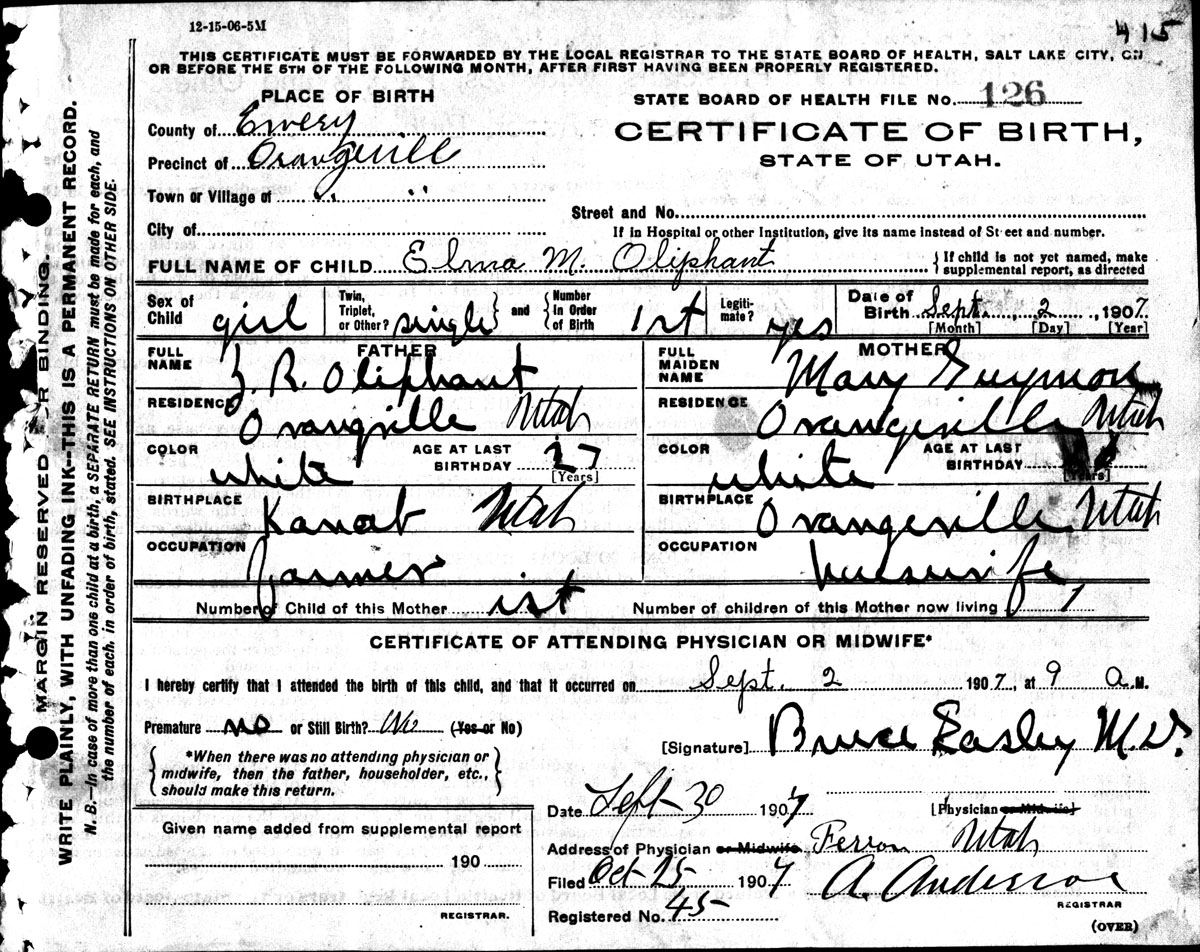 12-15-06-5M
415
THIS CERTIFICATE MUST BE FORWARDED BY THE LOCAL REGISTRAR TO THE STATE BOARD OF HEALTH, SALT LAKE CITY, ON
OR BEFORE THE 5TH OF THE FOLLOWING MONTH, AFTER FIRST HAVING BEEN PROPERLY REGISTERED.
PLACE OF BIRTH
STATE BOARD OF HEALTH FILE NO. 126
County of Emery
CERTIFICATE OF BIRTH,
Precinct of Orangeville
STATE OF UTAH.
Town or Village of " "
Street and No.
City of
If in Hospital or other Institution, give its name instead of Street and number.
FULL NAME OF CHILD Elma M. Oliphant
{If child is not yet named, make
supplemental report, as directed
Sex of Child girl
Twin, Triplet, or Other? single
and
Number In Order of Birth 1st
Legiti-mate? yes
Date of Birth Sept. 2, 1907.
[Month] [Day] [Year]
FATHER
FULL NAME Z. R. Oliphant
RESIDENCE Orangville Utah
COLOR white
AGE AT LAST BIRTHDAY 27
[Years]
BIRTHPLACE Kanab Utah
OCCUPATION Farmer
MOTHER
FULL MAIDEN NAME Mary Guymon
RESIDENCE Orangeville Utah
COLOR white
AGE AT LAST BIRTHDAY
[Years]
BIRTHPLACE Orangeville Utah
OCCUPATION housewife
Number of Child of this Mother 1st
Number of children of this Mother now living 1
CERTIFICATE OF ATTENDING PHYSICIAN OR MIDWIFE*
I hereby certify that I attended the birth of this child, and that it occurred on Sept. 2 1907, at 9 A.M.
Premature no or Still Birth? No (Yes or No)
[Signature] Bruce Easley M.D.
*When there was no attending physician or
midwife, then the father, householder, etc.,
should make this return.
Date Sept 30 1907
[Physician or Midwife]
Given name added from supplemental report
Address of Physician or Midwife Ferron Utah
190
Filed Oct 25 1907
A. Anderson
REGISTRAR
REGISTRAR.
Registered No. 45
(OVER)
MARGIN RESERVED FOR BINDING.
WRITE PLAINLY, WITH UNFADING INK--THIS IS A PERMANENT RECORD.
N. B.--In case of more than one child at a birth, a SEPARATE RETURN must be made for each, and
the number of each, in order of birth, stated. SEE INSTRUCTIONS ON OTHER SIDE.